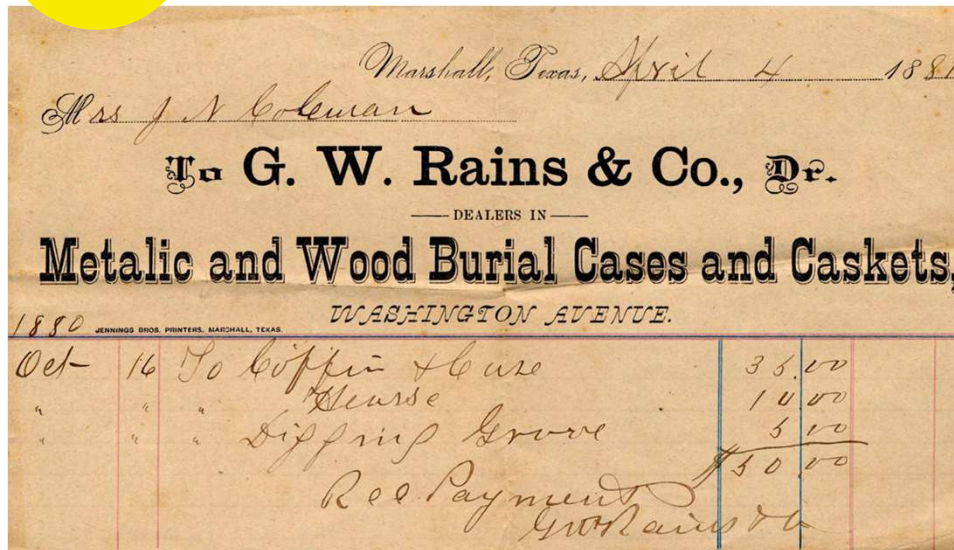 Marshall, Texas, April 4 1881
Mrs J N Coleman
To G. W. Rains & Co., Dr.
DEALERS IN
Metalic and Wood Burial Cases and Caskets,
WASHINGTON AVENUE.
1880 JENNINGS BROS. PRINTERS, MARSHALL, TEXAS.
Oct 16 To Coffin & Case 35.00
" " " Hearse 10 00
" " " Digging Grave 5 00
$50.00
Rec Payment
GW Rains & Co